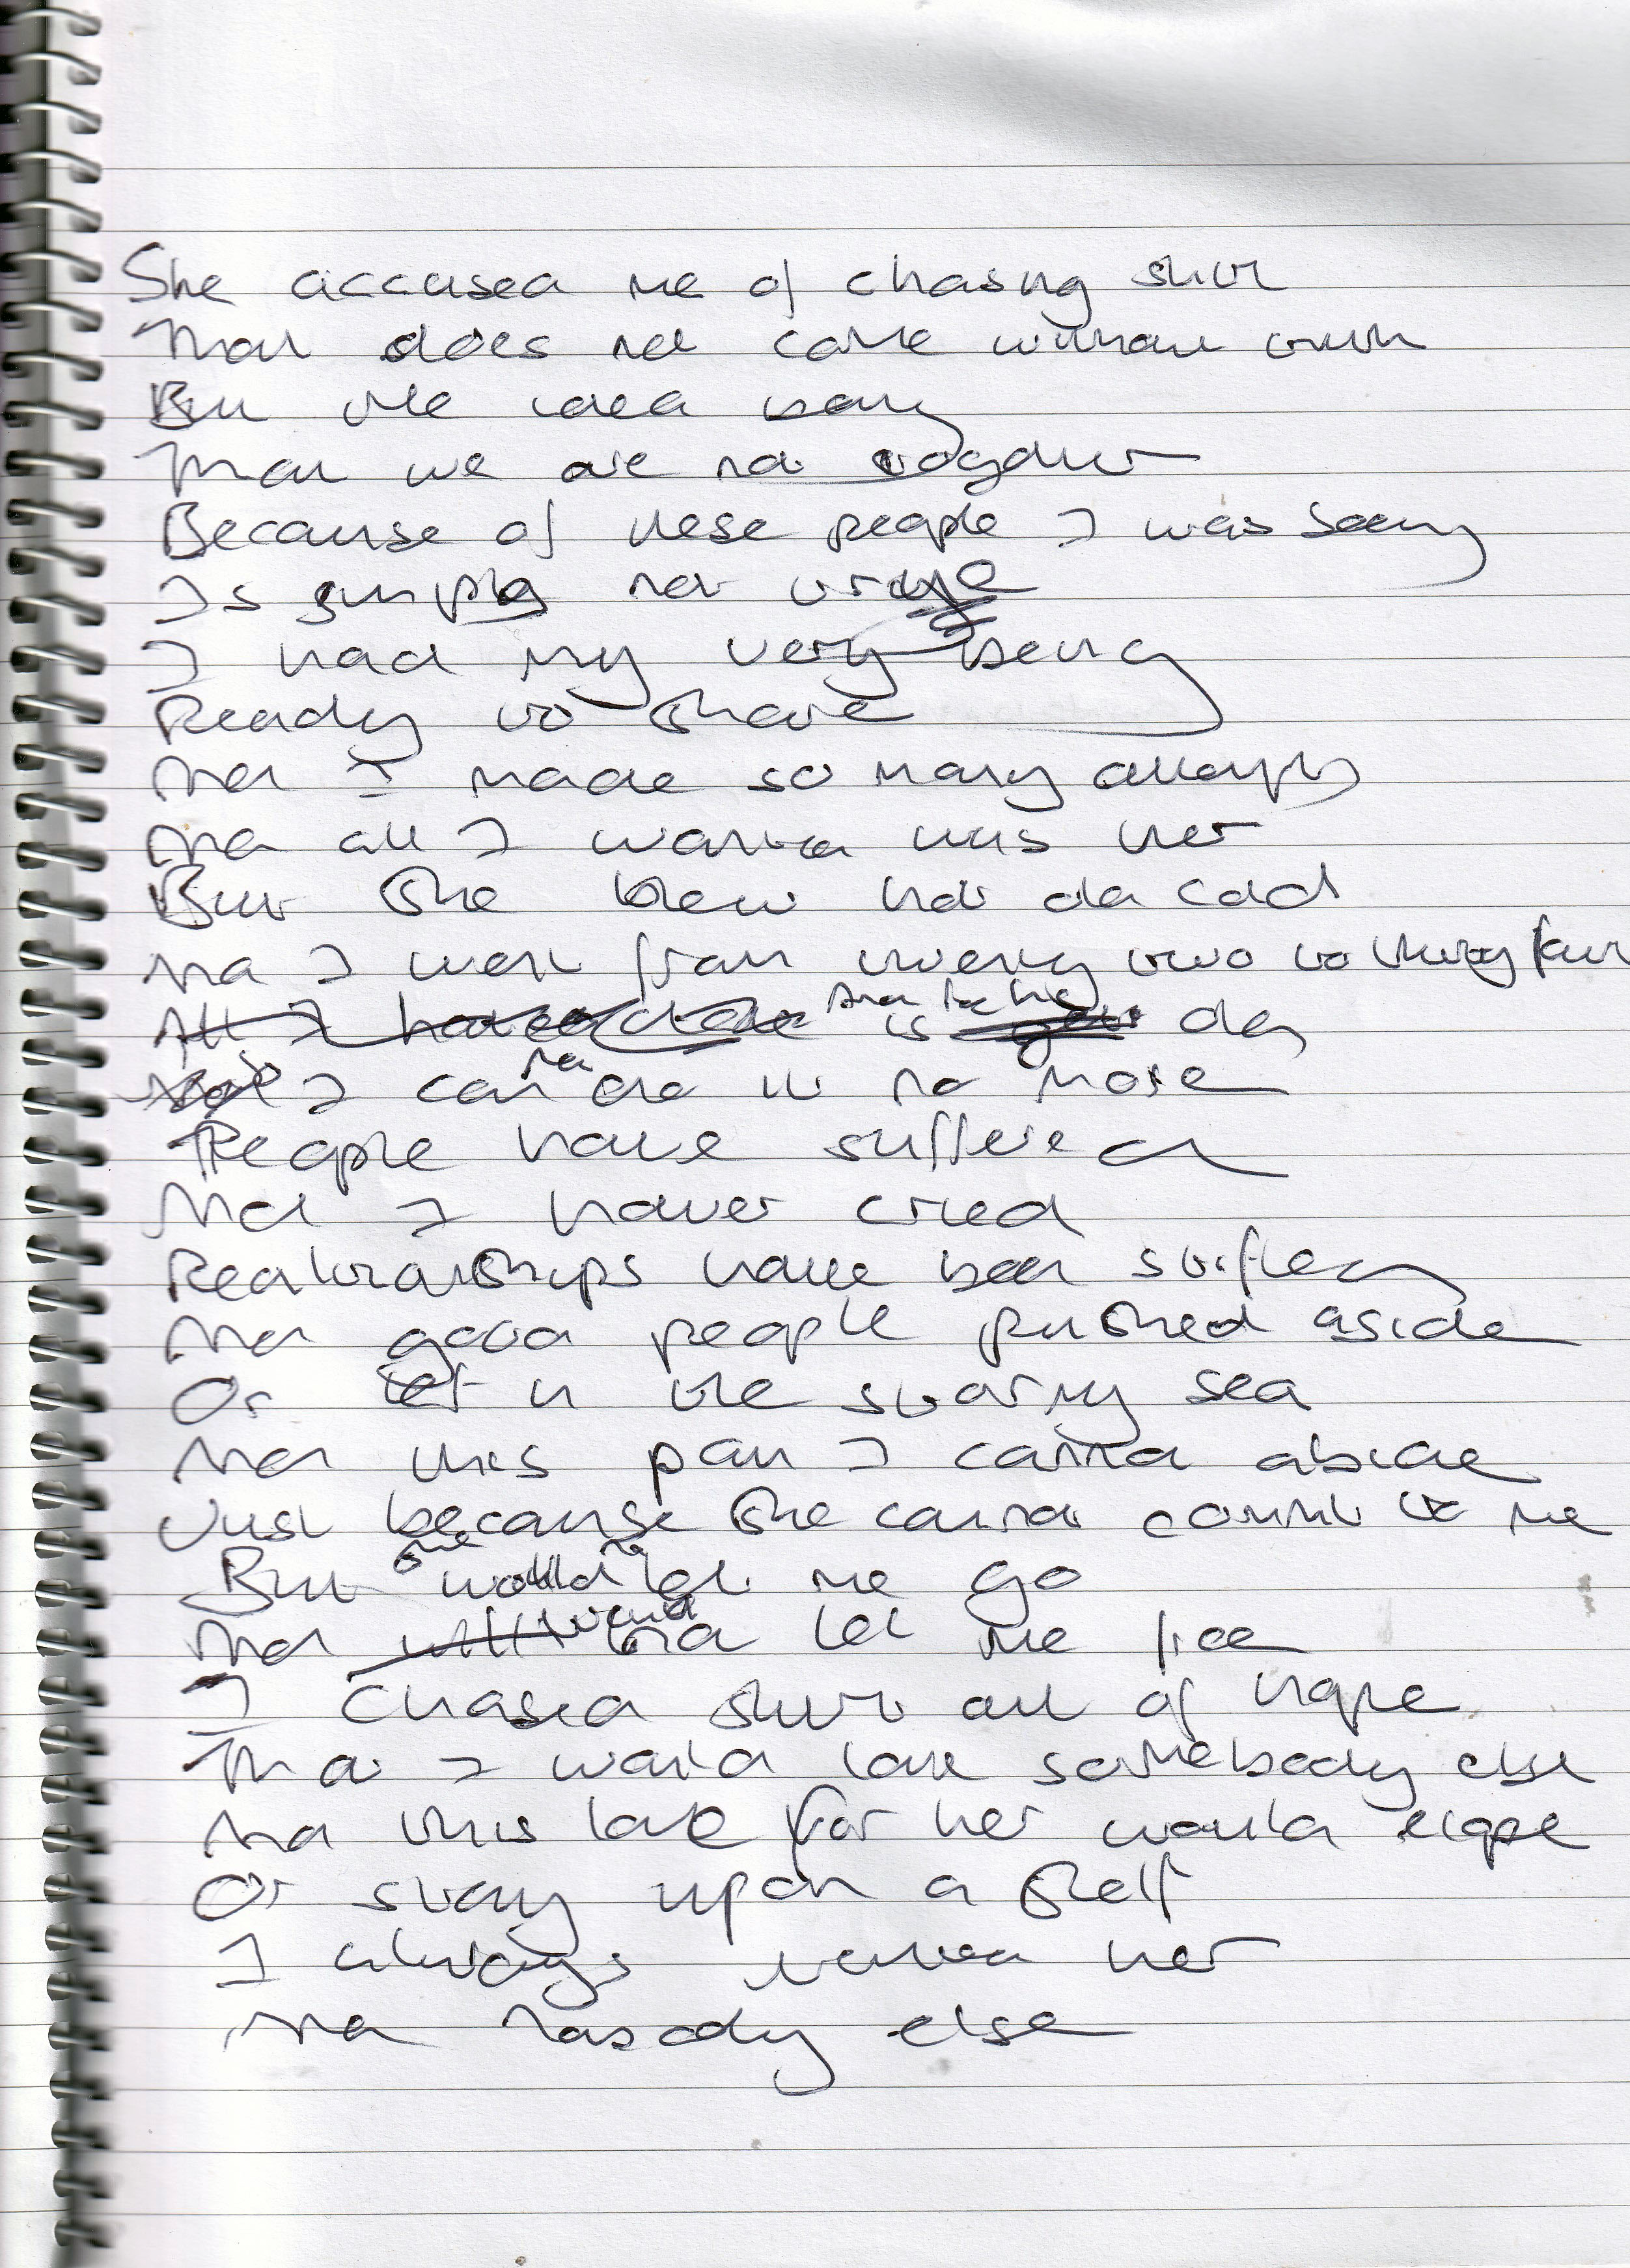 She accused me of chasing skirt
That does not come without truth
But the idea being
That we are not together
Because of these people I was seeing
Is simply not true
I had my very being
Ready to share
And I made so many attempts
And all I wanted was her
But she blew hot and cold
And I went from twenty two to thirty four
And is day
I can not do it no more
People have suffered
And I have cried
Realtionships have been stifled
And good people pushed aside
Or left in the starry sea
And this pain I cannot abide
Just because she cannot commit to me
But she would not let me go
And would not let me free
I chased skirt out of hope
That I would love somebody else
And this love for her would elope
Or stay upon a shelf
I always wanted her
And nobody else